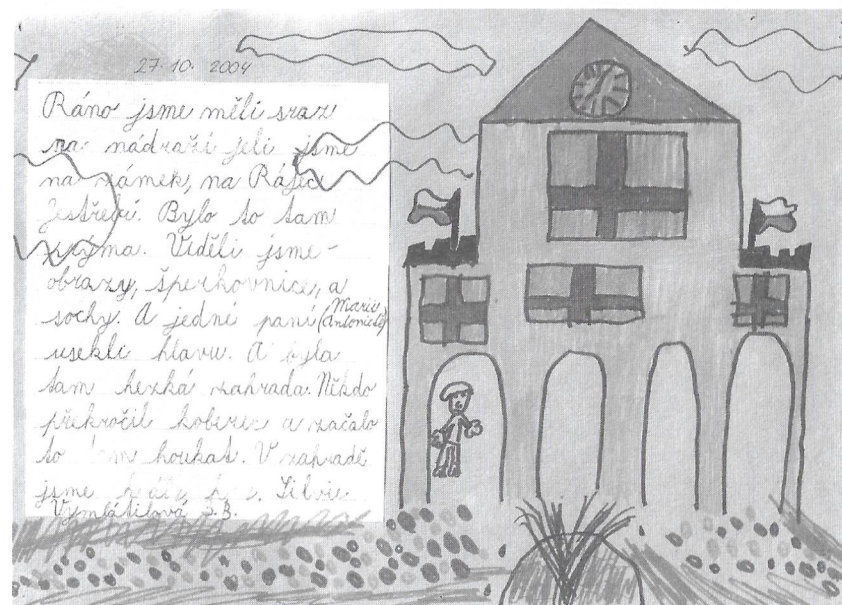 27.10. 2004
Ráno jsme měli sraz
na nádraží jeli jsme
na zámek, na Rájec
Jestřebí. Bylo to tam
príma. Viděli jsme
obrazy, šperkovnice, a
sochy. A jedné paní (Marie Antonietě)
usekli hlavu. A byla
tam hezká zahrada. Někdo
překročil koberec a začalo
to tam houkat. V zahradě
jsme hráli Silvie
Vymlátilová 3.B.